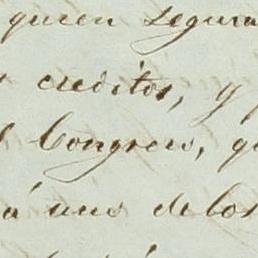 quien segura
creditos, y
l Congreso, q
á uno de los